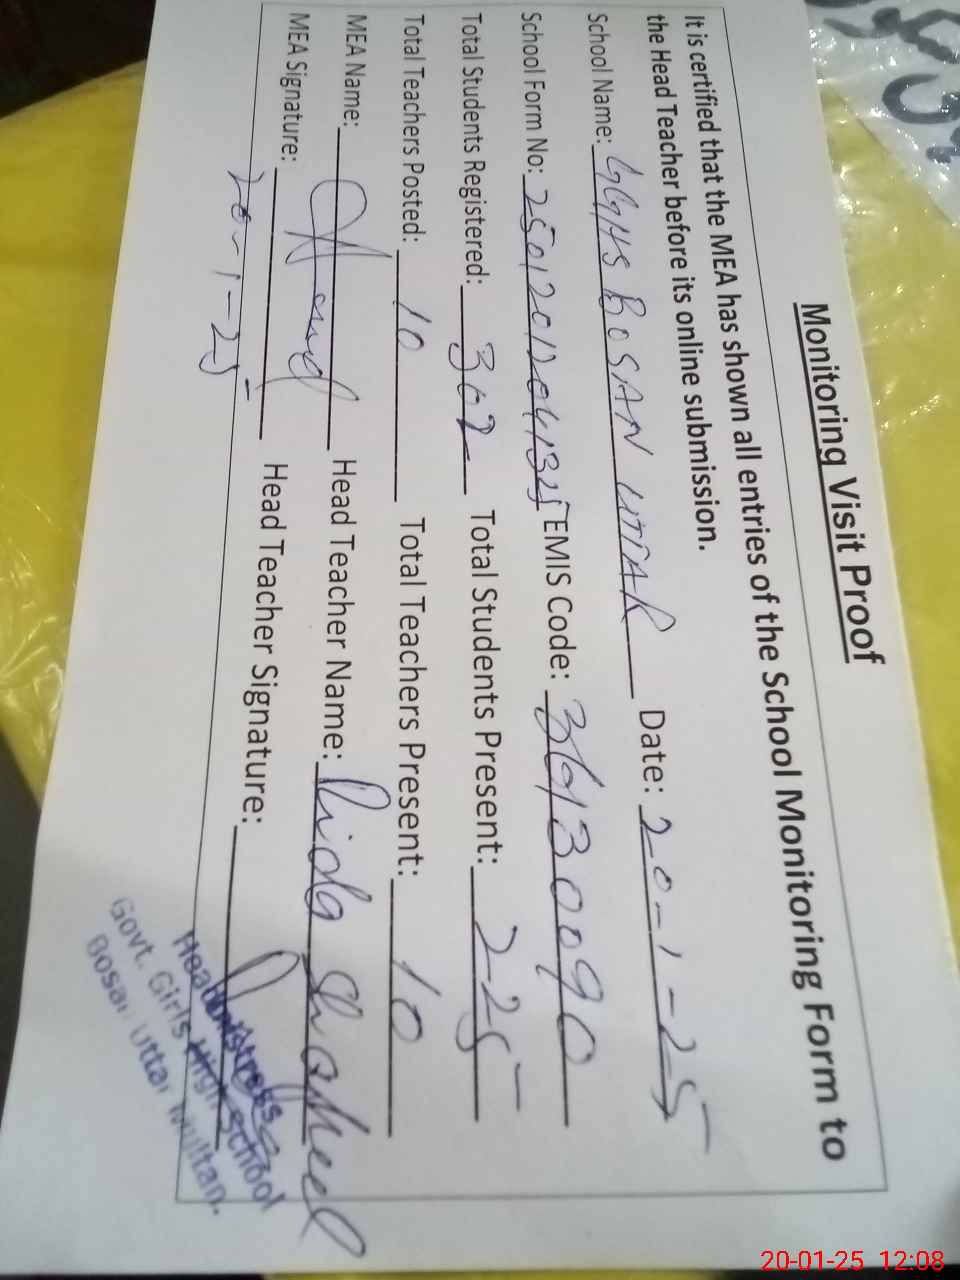 Monitoring Visit Proof
It is certified that the MEA has shown all entries of the School Monitoring Form to
the Head Teacher before its online submission.
School Name: GGHS BOSAN UTTAR Date: 20-1-25
School Form No: 25012012041325 EMIS Code: 36130090
Total Students Registered: 302 Total Students Present: 225
Total Teachers Posted: 10 Total Teachers Present: 10
MEA Name: Head Teacher Name: Rida Shakeel
MEA Signature: Head Teacher Signature:
20-1-25
Headmistress
Govt. Girls High School
Bosan Uttar Multan.
20-01-25 12:08